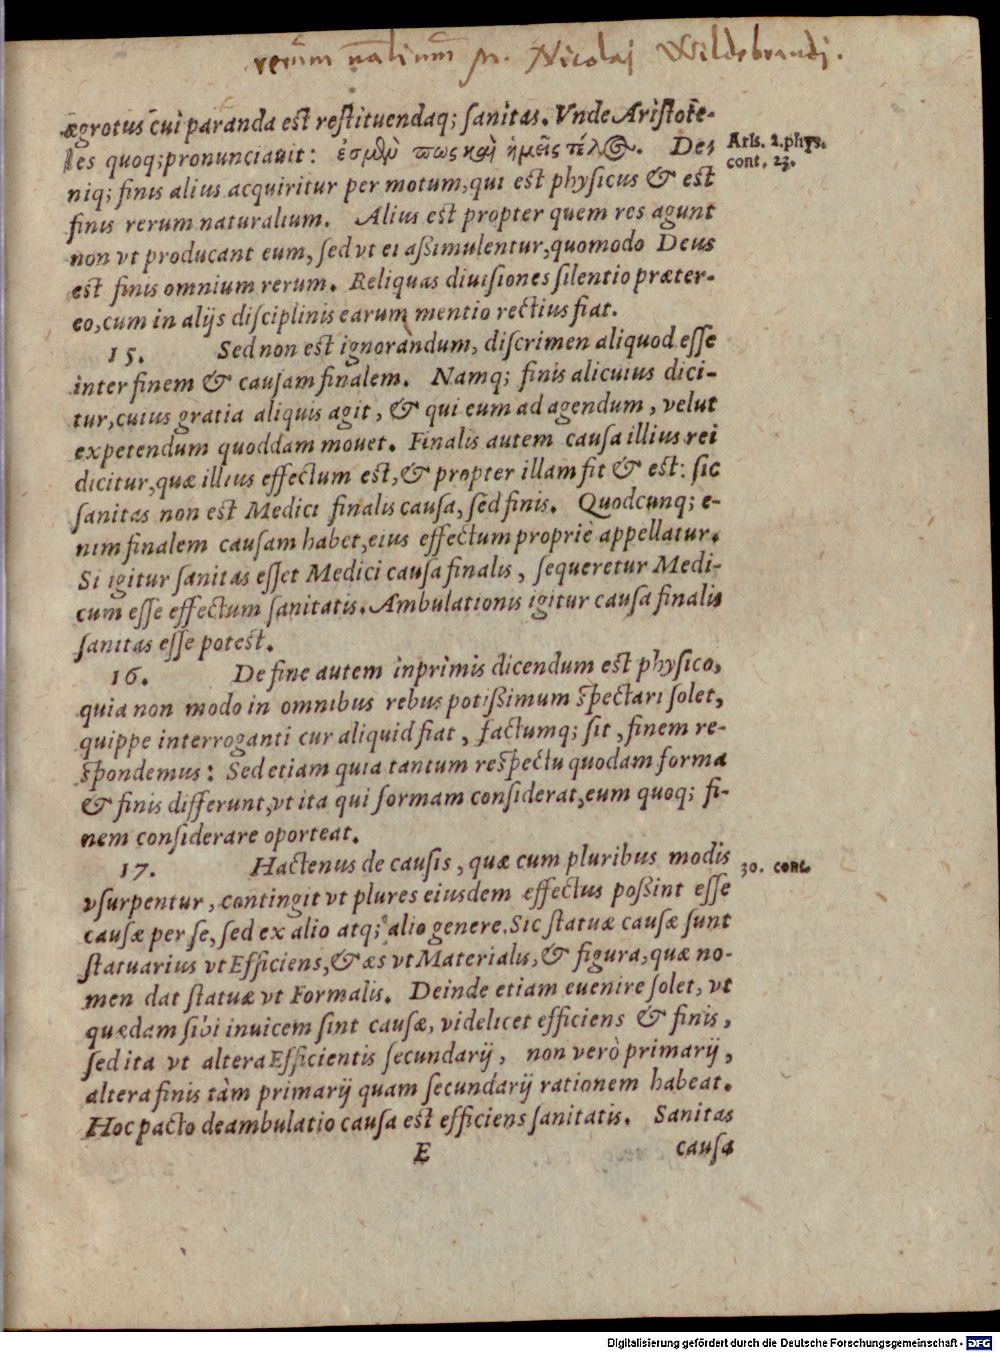 rerum naalium M. Nicolaj Wildebrandj.
ægrotus cui paranda est restituendaq; sanitas. Vnde Aristote-
les quoq; pronunciauit: ἐσμὲν πως καὶ ἡμεῖς τέλος. De- Aris. 2. phys.
niq; finis alius acquiritur per motum, qui est physicus & est cont. 23.
finis rerum naturalium. Alius est propter quem res agunt
non vt producant eum, sed vt ei aßimulentur, quomodo Deus
est finis omnium rerum. Reliquas diuisiones silentio præter-
eo, cum in alijs disciplinis earum mentio rectius fiat.
15. Sed non est ignorandum, discrimen aliquod esse
inter finem & causam finalem. Namq; finis alicuius dici-
tur, cuius gratia aliquis agit, & qui eum ad agendum, velut
expetendum quoddam mouet. Finalis autem causa illius rei
dicitur, quæ illius effectum est, & propter illam fit & est: sic
sanitas non est Medici finalis causa, sed finis. Quodcunq; e-
nim finalem causam habet, eius effectum propriè appellatur.
Si igitur sanitas esset Medici causa finalis, sequeretur Medi-
cum esse effectum sanitatis. Ambulationis igitur causa finalis
sanitas esse potest.
16. De fine autem inprimis dicendum est physico,
quia non modo in omnibus rebus potißimum spectari solet,
quippe interroganti cur aliquid fiat, factumq; sit, finem re-
spondemus: Sed etiam quia tantum respectu quodam forma
& finis differunt, vt ita qui formam considerat, eum quoq; fi-
nem considerare oporteat.
17. Hactenus de causis, quæ cum pluribus modis 30. cont.
vsurpentur, contingit vt plures eiusdem effectus poßint esse
causæ per se, sed ex alio atq; alio genere. Sic statuæ causæ sunt
statuarius vt Efficiens, & æs vt Materialis, & figura, quæ no-
men dat statuæ vt Formalis. Deinde etiam euenire solet, vt
quædam sibi inuicem sint causæ, videlicet efficiens & finis,
sed ita vt altera Efficientis secundarij, non verò primarij,
altera finis tàm primarij quam secundarij rationem habeat.
Hoc pacto deambulatio causa est efficiens sanitatis. Sanitas
E causa
Digitalisierung gefördert durch die Deutsche Forschungsgemeinschaft - DFG